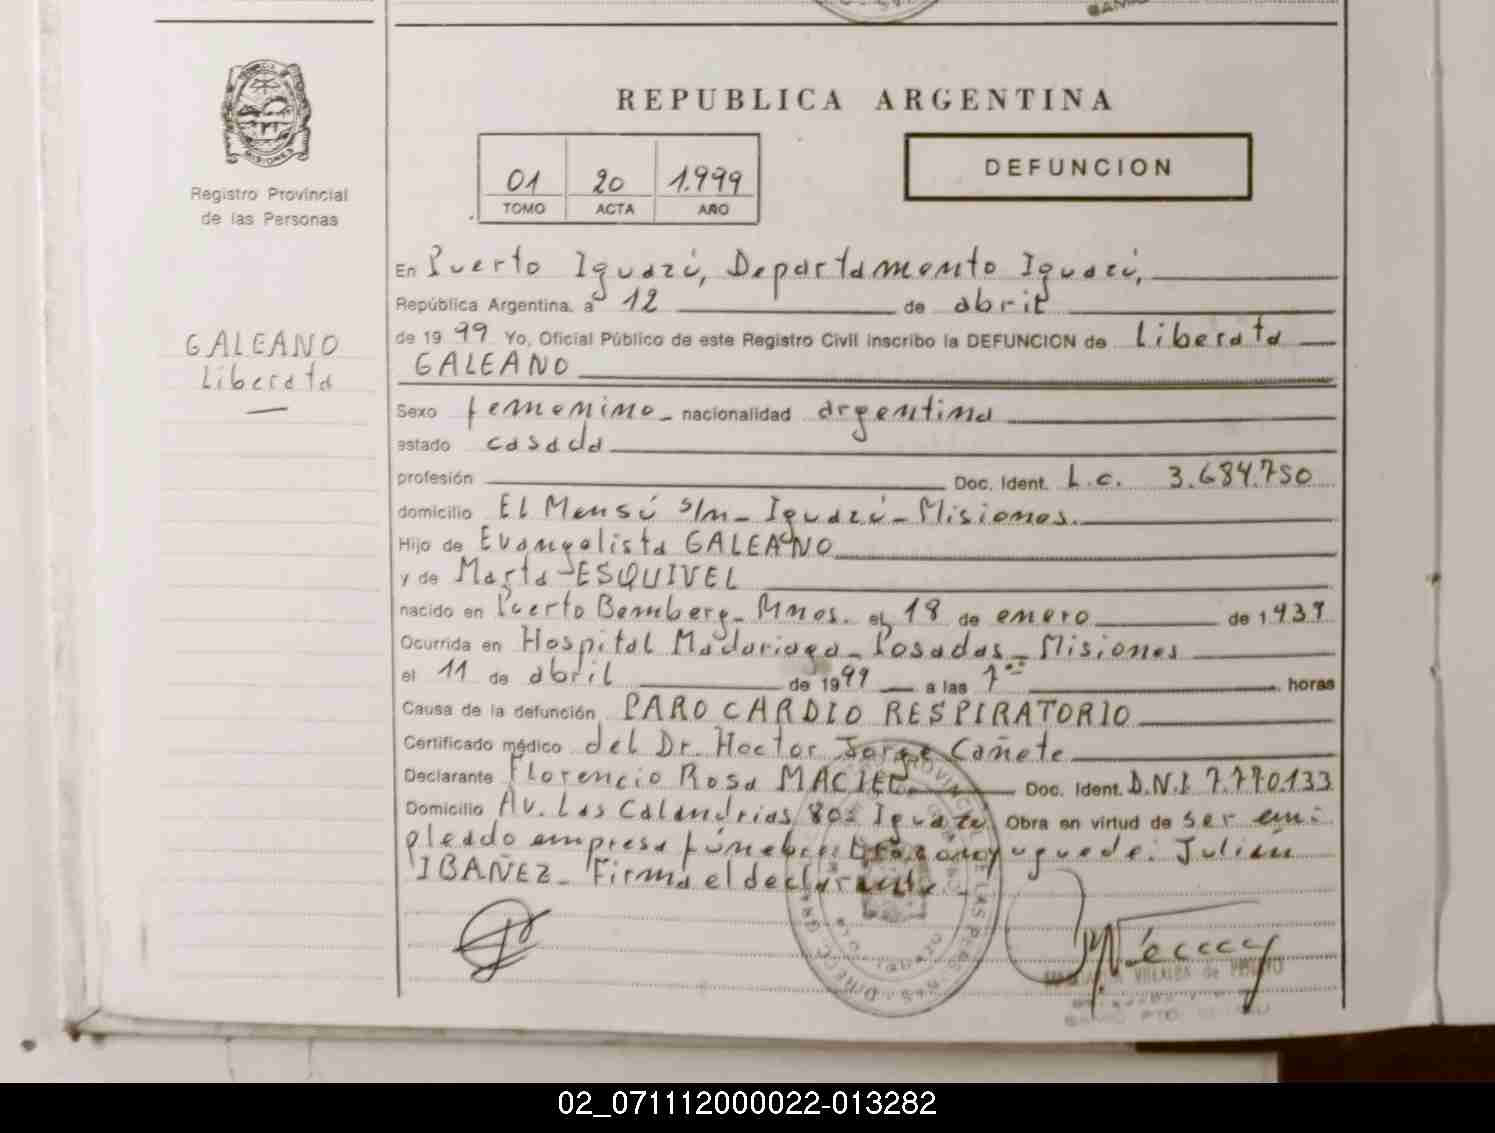 REPUBLICA ARGENTINA
Registro Provincial
de las Personas
01 20 1.999
TOMO ACTA AÑO
DEFUNCION
GALEANO
Liberata
En Puerto Iguazú, Departamento Iguazú,
República Argentina, a 12 de abril
de 1999 Yo, Oficial Público de este Registro Civil inscribo la DEFUNCION de Liberata
GALEANO
Sexo femenino nacionalidad argentina
estado casada
profesión Doc. Ident. L.c. 3.684.750
domicilio El Mensú s/n - Iguazú - Misiones.
Hijo de Evangelista GALEANO
y de Marta ESQUIVEL
nacido en Puerto Bemberg - Mnes. el 18 de enero de 1.939
Ocurrida en Hospital Madariaga - Posadas - Misiones
el 11 de abril de 1999 a las 7 horas
Causa de la defunción PARO CARDIO RESPIRATORIO
Certificado médico del Dr. Hector Jorge Cañete
Declarante Florencio Rosa MACIEL Doc. Ident. D.N.I. 7.770.133
Domicilio Av. Las Calandrias 80 Iguazú Obra en virtud de ser em-
pleado empresa fúnebre conyuge de: Julián
IBAÑEZ - Firma el declarante -
02_071112000022-013282